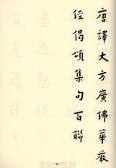 唐譯大方廣佛華嚴
經偈頌集句百聯